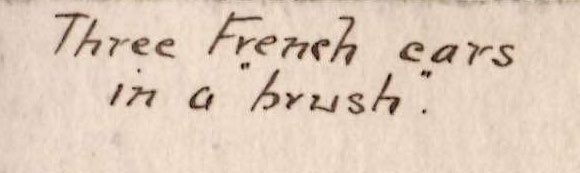 Three French cars
in a "brush".